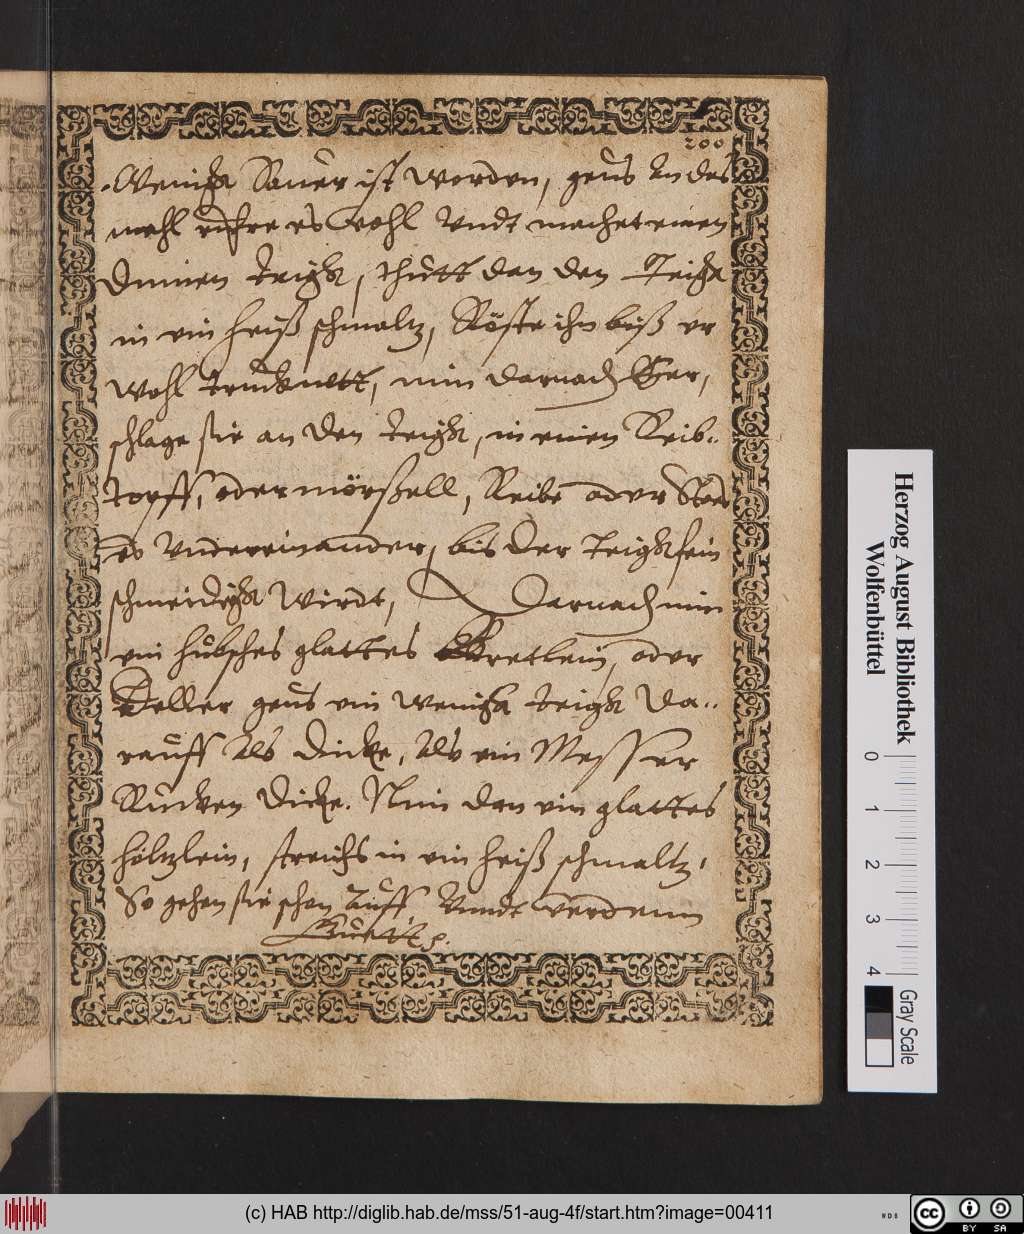 200
Wenigk Sauer ist worden, geus An das
mehl rühre es Wohl Undt machet einen
Dunnen teigk, thutt dan den Teigk
in ein heiß schmaltz, Röste ihn biß er
Wohl trucknett, nim darnach Eÿer,
schlage sie an den teigk, in einen Reib-
topff, oder mörßell, Reibe oder Stos
es Undereinander, bis der teigk fein
schmeidigk Wirdt, Darnach nim
ein hubsches glattes Bretlein, oder
Deller geus ein wenigk teigk Da-
rauff Als dicke, Als ein Messer
Rucken dicke. Nim dan ein glattes
höltzlein, streichs in ein heiß schmaltz,
So gehen sie schon Auff, Unndt werdenn
Guett
Herzog August Bibliothek
Wolfenbüttel
0 1 2 3 4
Gray Scale
(c) HAB http://diglib.hab.de/mss/51-aug-4f/start.htm?image=00411
WDB
cc BY SA